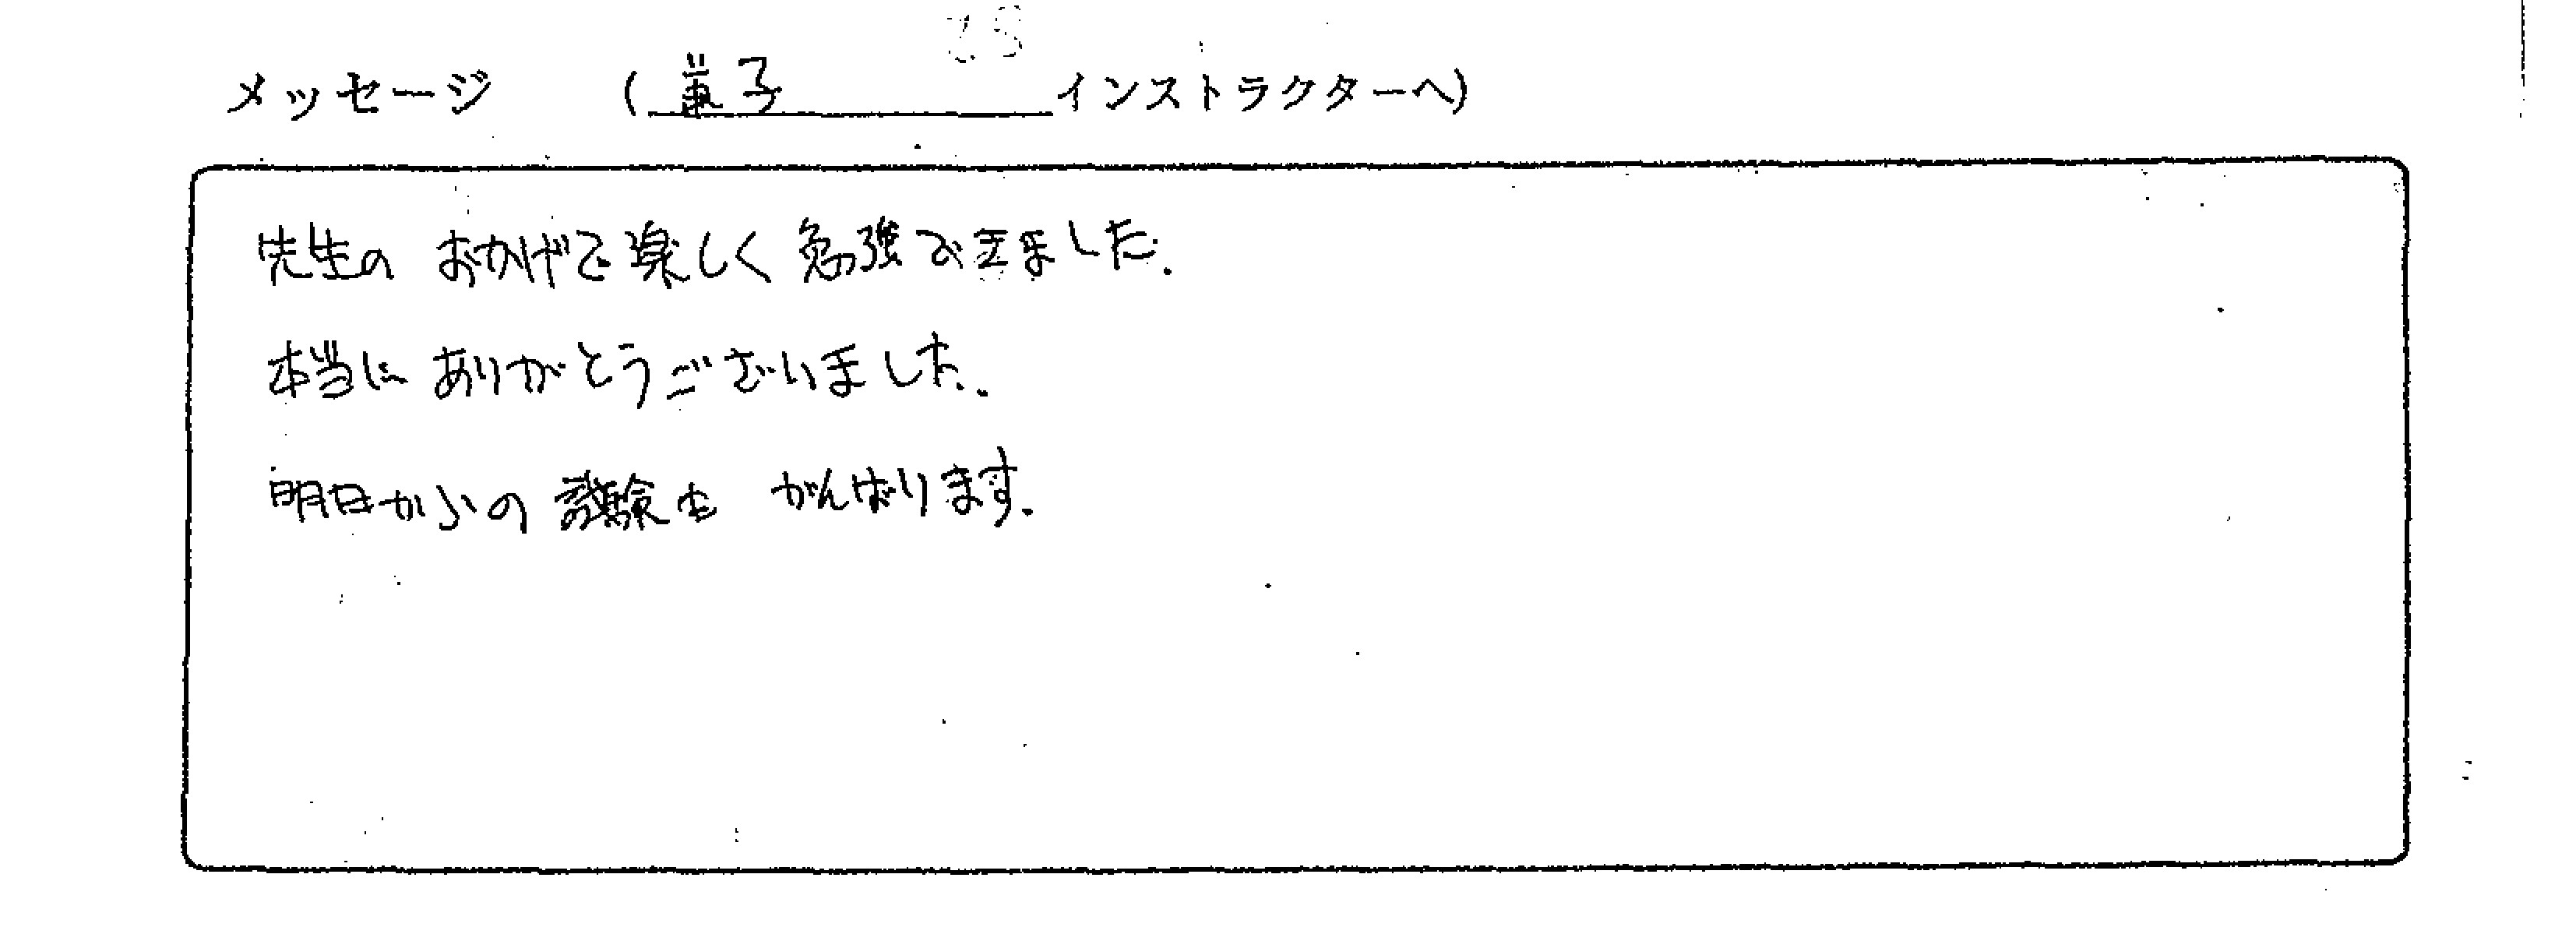 メッセージ (菫子インストラクターへ)
先生のおかげで楽しく勉強できました.
本当にありがとうございました.
明日からの試験もがんばります.